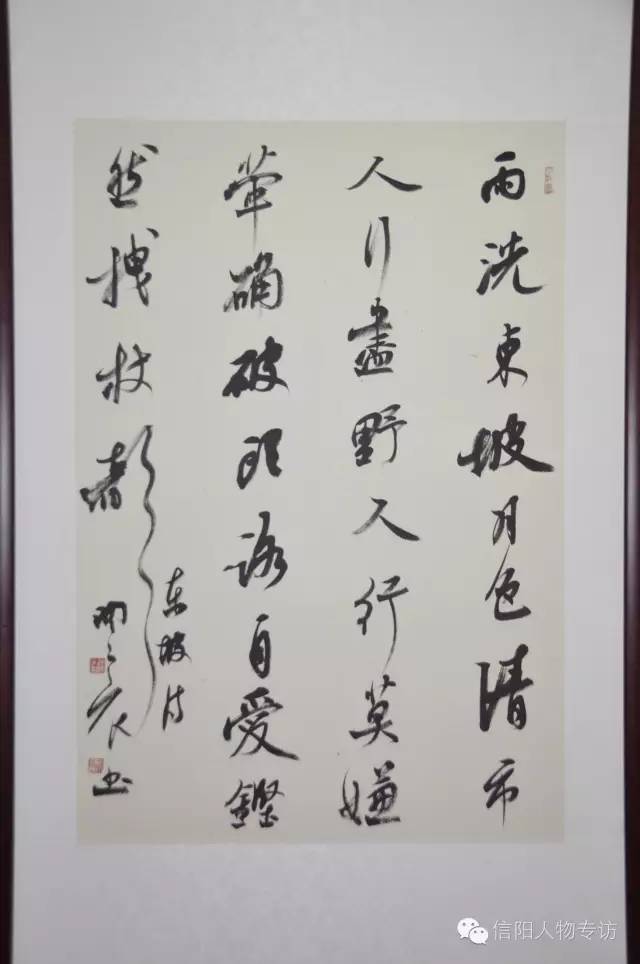 雨洗東坡月色清市
人行盡野人行莫嫌
荦确破头路自愛鏗
然拽杖聲
东坡诗
书
信阳人物专访